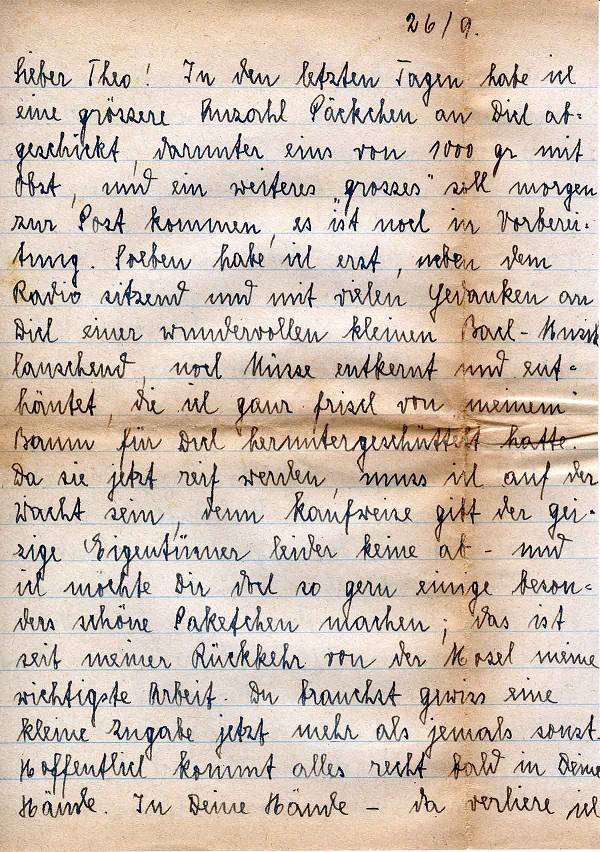 26/9.
Lieber Theo! In den letzten Tagen habe ich
eine grössere Anzahl Päckchen an Dich ab-
geschickt, darunter eins von 1000 gr mit
Obst, und ein weiteres "grosses" soll morgen
zur Post kommen, es ist noch in Vorberei-
tung. Soeben habe ich erst, neben dem
Radio sitzend und mit vielen Gedanken an
Dich einer wundervollen kleinen Bach-Musik
lauschend, noch Nüsse entkernt und ent-
häutet, die ich ganz frisch von meinem
Baum für Dich heruntergeschüttelt hatte.
Da sie jetzt reif werden, muss ich auf der
Wacht sein, denn kaufweise gibt der gei-
zige Eigentümer leider keine ab - und
ich möchte Dir doch so gern einige beson-
ders schöne Paketchen machen; das ist
seit meiner Rückkehr von der Mosel meine
wichtigste Arbeit. Du brauchst gewiss eine
kleine Zugabe jetzt mehr als jemals sonst.
Hoffentlich kommt alles recht bald in Deine
Hände. In Deine Hände - da verliere ich